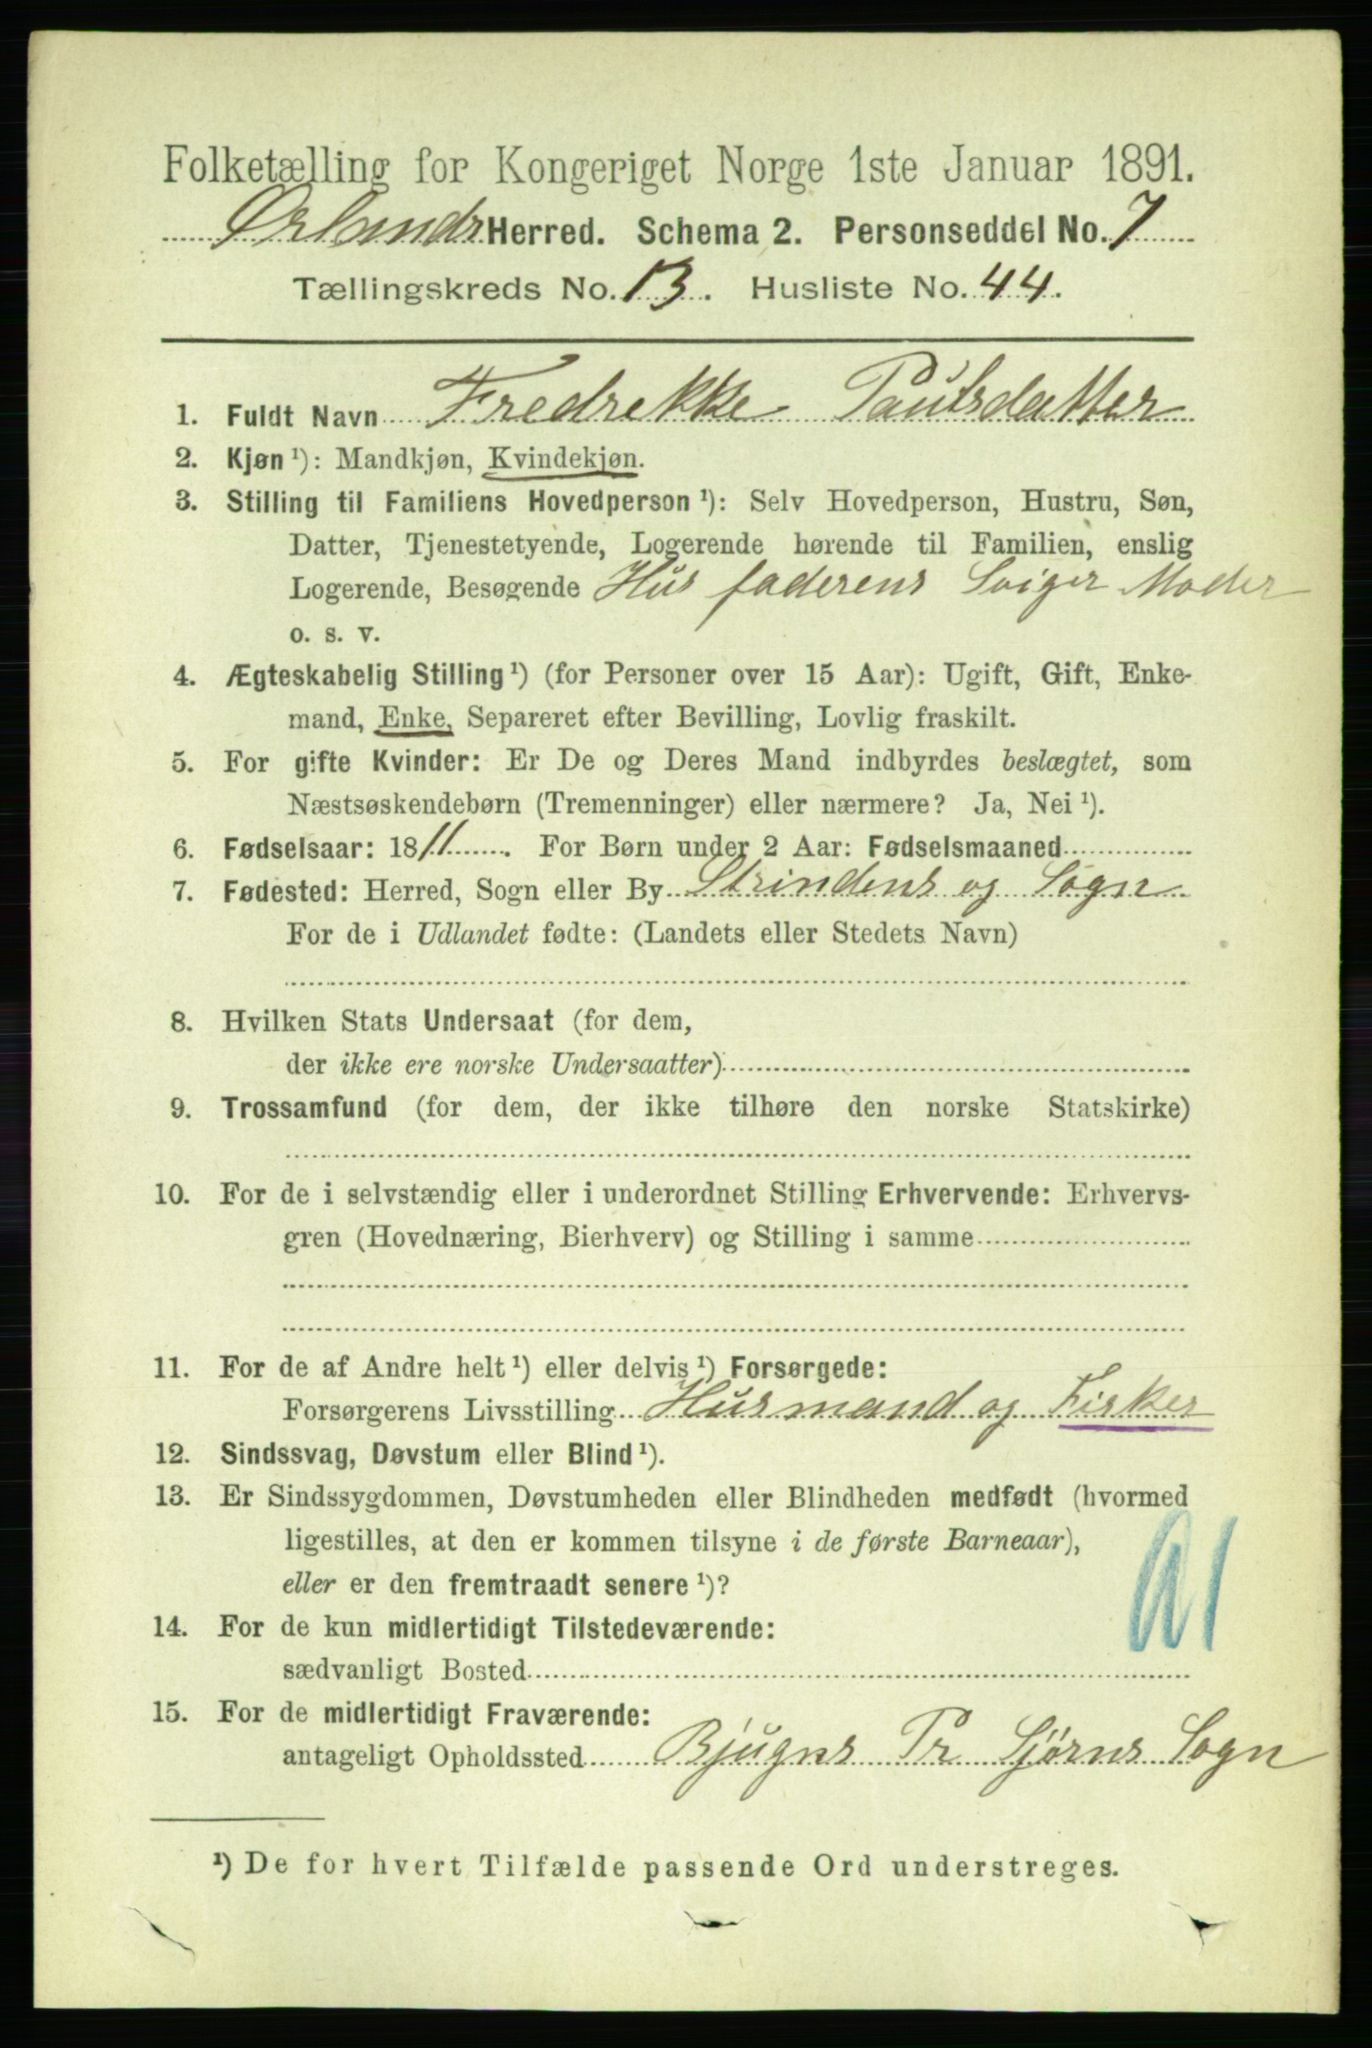 Folketælling for Kongeriget Norge 1ste Januar 1891.
Ørlands Herred. Schema 2. Personseddel No. 7
Tællingskreds No. 13. Husliste No. 44.
1. Fuldt Navn Fredrekke Paulsdatter
2. Kjøn ¹): Mandkjøn, Kvindekjøn.
3. Stilling til Familiens Hovedperson ¹): Selv Hovedperson, Hustru, Søn,
Datter, Tjenestetyende, Logerende hørende til Familien, enslig
Logerende, Besøgende Hus faderens Sviger Moder
o. s. v.
4. Ægteskabelig Stilling ¹) (for Personer over 15 Aar): Ugift, Gift, Enke-
mand, Enke, Separeret efter Bevilling, Lovlig fraskilt.
5. For gifte Kvinder: Er De og Deres Mand indbyrdes beslægtet, som
Næstsøskendebørn (Tremenninger) eller nærmere? Ja, Nei ¹).
6. Fødselsaar: 1811. For Børn under 2 Aar: Fødselsmaaned
7. Fødested: Herred, Sogn eller By Strindens og Sogn
For de i Udlandet fødte: (Landets eller Stedets Navn)
8. Hvilken Stats Undersaat (for dem,
der ikke ere norske Undersaatter)
9. Trossamfund (for dem, der ikke tilhøre den norske Statskirke)
10. For de i selvstændig eller i underordnet Stilling Erhvervende: Erhvervs-
gren (Hovednæring, Bierhverv) og Stilling i samme
11. For de af Andre helt ¹) eller delvis ¹) Forsørgede:
Forsørgerens Livsstilling Husmand og Fisker
12. Sindssvag, Døvstum eller Blind ¹).
13. Er Sindssygdommen, Døvstumheden eller Blindheden medfødt (hvormed
ligestilles, at den er kommen tilsyne i de første Barneaar),
eller er den fremtraadt senere ¹)?
14. For de kun midlertidigt Tilstedeværende:
sædvanligt Bosted
15. For de midlertidigt Fraværende:
antageligt Opholdssted Bjugns Pr Sjørns Sogn
¹) De for hvert Tilfælde passende Ord understreges.